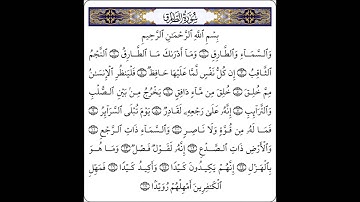 سُورَةُ الطَّارِقِ
بِسْمِ اللَّهِ الرَّحْمَٰنِ الرَّحِيمِ
وَالسَّمَاءِ وَالطَّارِقِ ۝١ وَمَا أَدْرَىٰكَ مَا الطَّارِقُ ۝٢ النَّجْمُ
الثَّاقِبُ ۝٣ إِن كُلُّ نَفْسٍ لَّمَّا عَلَيْهَا حَافِظٌ ۝٤ فَلْيَنظُرِ الْإِنسَٰنُ
مِمَّ خُلِقَ ۝٥ خُلِقَ مِن مَّاءٍ دَافِقٍ ۝٦ يَخْرُجُ مِن بَيْنِ الصُّلْبِ
وَالتَّرَائِبِ ۝٧ إِنَّهُ عَلَىٰ رَجْعِهِ لَقَادِرٌ ۝٨ يَوْمَ تُبْلَى السَّرَائِرُ ۝٩
فَمَا لَهُ مِن قُوَّةٍ وَلَا نَاصِرٍ ۝١٠ وَالسَّمَاءِ ذَاتِ الرَّجْعِ ۝١١
وَالْأَرْضِ ذَاتِ الصَّدْعِ ۝١٢ إِنَّهُ لَقَوْلٌ فَصْلٌ ۝١٣ وَمَا هُوَ
بِالْهَزْلِ ۝١٤ إِنَّهُمْ يَكِيدُونَ كَيْدًا ۝١٥ وَأَكِيدُ كَيْدًا ۝١٦ فَمَهِّلِ
الْكَٰفِرِينَ أَمْهِلْهُمْ رُوَيْدًا ۝١٧